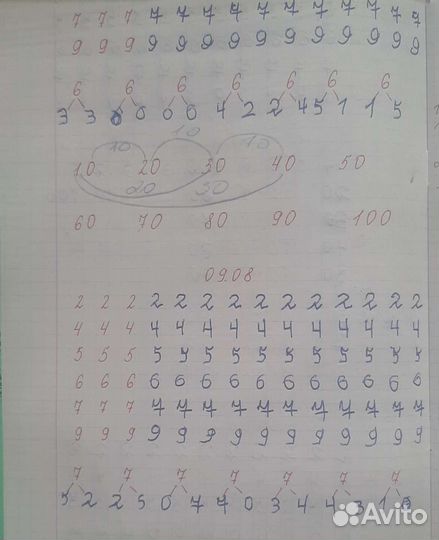 7 7 7 7 7 7 7 7 7 7 7 7 7 7
9 9 9 9 9 9 9 9 9 9 9 9 9 9
6 6 6 6 6 6 6
3 3 6 0 0 6 4 2 2 4 5 1 1 5
10 10 10
10 20 30 40 50
20 30
60 70 80 90 100
09.08
2 2 2 2 2 2 2 2 2 2 2 2 2 2
4 4 4 4 4 4 4 4 4 4 4 4 4 4
5 5 5 5 5 5 5 5 5 5 5 5 5 5
6 6 6 6 6 6 6 6 6 6 6 6 6 6
7 7 7 7 7 7 7 7 7 7 7 7 7 7
9 9 9 9 9 9 9 9 9 9 9 9 9 9
7 7 7 7 7 7 7
5 2 2 5 0 7 7 0 3 4 4 3 1 6
Avito